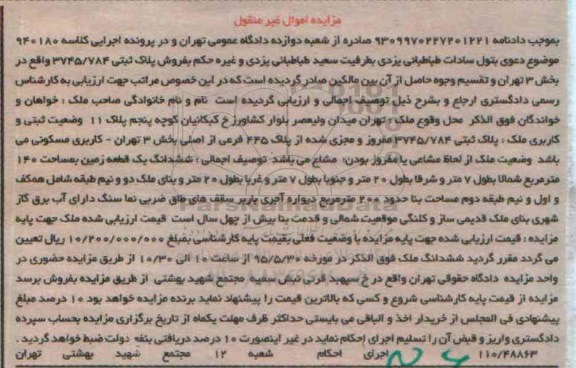 مزایده اموال غیر منقول
بموجب دادنامه ۹۳۰۹۹۷۰۲۲۷۲۰۱۲۲۱ صادره از شعبه دوازده دادگاه عمومی تهران و در پرونده اجرایی کلاسه ۹۴۰۱۸۰
موضوع دعوی بتول سادات طباطبائی یزدی بطرفیت سعید طباطبائی یزدی و غیره حکم بفروش پلاک ثبتی ۳۷۴۵/۷۸۴ واقع در
بخش ۳ تهران و تقسیم وجوه حاصل از آن بین مالکین صادر گردیده است که در این خصوص مراتب جهت ارزیابی به کارشناس
رسمی دادگستری ارجاع و بشرح ذیل توصیف اجمالی و ارزیابی گردیده است نام و نام خانوادگی صاحب ملک : خواهان و
خواندگان فوق الذکر محل وقوع ملک : تهران میدان ولیعصر بلوار کشاورز خ کبکانیان کوچه پنجم پلاک ۱۱ وضعیت ثبتی و
کاربری ملک : پلاک ثبتی ۳۷۴۵/۷۸۴ مفروز و مجزی شده از پلاک ۴۴۵ فرعی از اصلی بخش ۳ تهران - کاربری مسکونی می
باشد وضعیت ملک از لحاظ مشاعی یا مفروز بودن: مشاع می باشد توصیف اجمالی : ششدانگ یک قطعه زمین بمساحت ۱۴۰
مترمربع شمالا بطول ۷ متر و شرقا بطول ۲۰ متر و جنوبا بطول ۷ متر و غربا بطول ۲۰ متر و بنای ملک دو و نیم طبقه شامل همکف
و اول و نیم طبقه دوم مساحت بنا حدود ۲۰۰ مترمربع دیواره آجری باربر سقف های طاق ضربی نما سنگ دارای آب برق گاز
شهری بنای ملک قدیمی ساز و کلنگی موقعیت شمالی و قدمت بنا بیش از چهل سال است قیمت ارزیابی شده ملک جهت پایه
مزایده : قیمت ارزیابی شده جهت پایه مزایده با وضعیت فعلی بقیمت پایه کارشناسی بمبلغ ۱۰/۲۰۰/۰۰۰/۰۰۰ ریال تعیین
می گردد مقرر گردید ششدانگ ملک فوق الذکر در مورخه ۹۵/۵/۳۰ از ساعت ۱۰ الی ۱۰/۳۰ از طریق مزایده حضوری در
واحد مزایده دادگاه حقوقی تهران واقع در خ سپهبد قرنی نبش سمیه مجتمع شهید بهشتی از طریق مزایده بفروش برسد
مزایده از قیمت پایه کارشناسی شروع و کسی که بالاترین قیمت را پیشنهاد نماید برنده مزایده خواهد بود ۱۰ درصد مبلغ
پیشنهادی فی المجلس از خریدار اخذ و الباقی می بایستی حداکثر ظرف مهلت یکماه از تاریخ برگزاری مزایده بحساب سپرده
دادگستری واریز و قبض آن را تسلیم اجرای احکام نماید در غیر اینصورت ۱۰ درصد دریافتی بنفع دولت ضبط خواهد گردید .
۱۱۰/۴۸۸۶۳ اجرای احکام شعبه ۱۲ مجتمع شهید بهشتی تهران